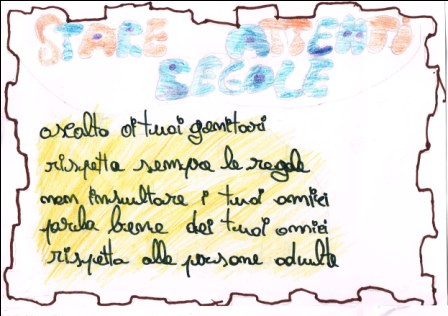 STARE ATTENTI
REGOLE
ascolto i tuoi genitori
rispetta sempre le regole
non insultare i tuoi amici
parla bene dei tuoi amici
rispetta alle persone adulte